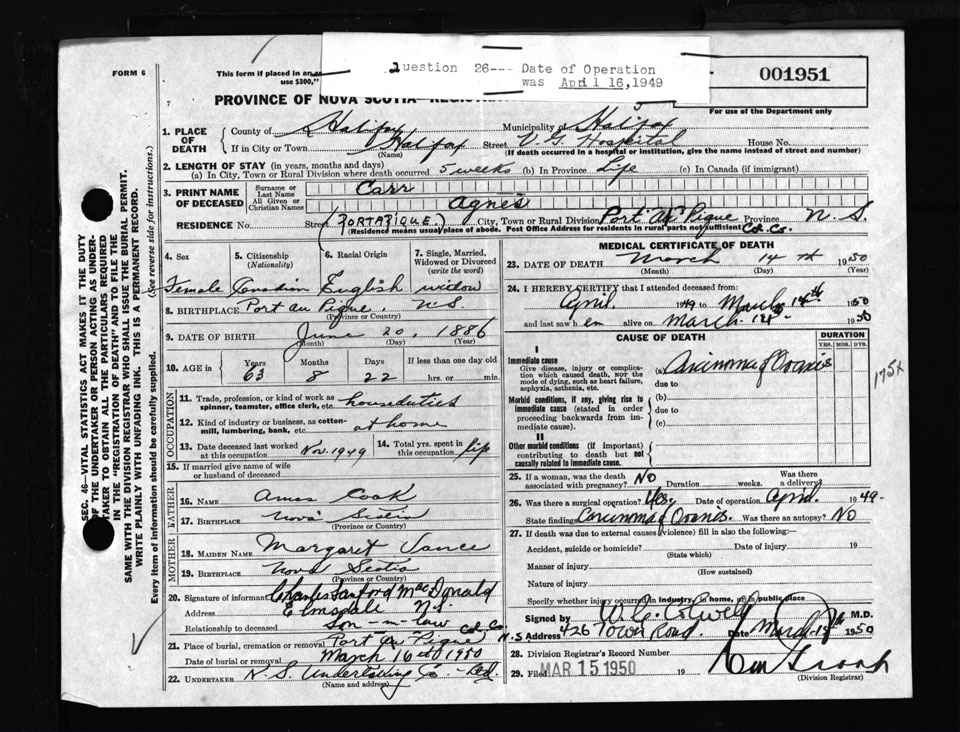 Question 26--- Date of Operation
was April 16, 1949
FORM 6
This form if placed in an
use $300,"
001951
For use of the Department only
PROVINCE OF NOVA SCOTIA
1. PLACE OF DEATH
County of Halifax Municipality of Halifax
If in City or Town Halifax (Name) Street V G Hospital House No.
(If death occurred in a hospital or institution, give its name instead of street and number)
2. LENGTH OF STAY (in years, months and days)
(a) In City, Town or Rural Division where death occurred 5 weeks (b) In Province Life (c) In Canada (if immigrant)
3. PRINT NAME OF DECEASED
Surname or Last Name Carr
All Given or Christian Names Agnes
RESIDENCE No. Street (PORTAPIQUE) City, Town or Rural Division Port Au Pique Province N. S.
(Residence means usual place of abode. Post Office Address for residents in rural parts not sufficient) Col. Co.
4. Sex
5. Citizenship (Nationality)
6. Racial Origin
7. Single, Married, Widowed or Divorced (write the word)
Female Canadian English widow
8. BIRTHPLACE Port au Pique, N.S.
(Province or Country)
9. DATE OF BIRTH June 20, 1886
(Month) (Day) (Year)
10. AGE in Years Months Days If less than one day old
63 8 22 hrs. or min.
OCCUPATION
11. Trade, profession, or kind of work as spinner, teamster, office clerk, etc. houseduties
12. Kind of industry or business, as cotton-mill, lumbering, bank, etc. at home
13. Date deceased last worked at this occupation Nov. 1949
14. Total yrs. spent in this occupation life
15. If married give name of wife or husband of deceased
FATHER
16. NAME Amos Cook
17. BIRTHPLACE Nova Scotia
(Province or Country)
MOTHER
18. MAIDEN NAME Margaret Vance
19. BIRTHPLACE Nova Scotia
(Province or Country)
20. Signature of informant Charles Sanford MacDonald
Address Elmsdale N.S.
Relationship to deceased Son-in-law
21. Place of burial, cremation or removal Port Au Pique Col Co N.S
Date of burial or removal March 16th 1950
22. UNDERTAKER N.S. Undertaking Co. Ltd.
(Name and address)
MEDICAL CERTIFICATE OF DEATH
23. DATE OF DEATH March 14th 1950
(Month) (Day) (Year)
24. I HEREBY CERTIFY that I attended deceased from:
April 1949 to March 14th 1950
and last saw h er alive on March 14th 1950
CAUSE OF DEATH
DURATION
YRS. MOS. DYS.
I
Immediate cause
Give disease, injury or complication which caused death, NOT the mode of dying, such as heart failure, asphyxia, asthenia, etc.
(a) Carcinoma of Ovaries
due to
Morbid conditions, if any, giving rise to immediate cause (stated in order proceeding backwards from immediate cause)
(b)
due to
(c)
II
Other morbid conditions (if important) contributing to death but not causally related to immediate cause.
175x
25. If a woman, was the death associated with pregnancy? NO Duration weeks. Was there a delivery?
26. Was there a surgical operation? Yes. Date of operation April 1949.
State findings Carcinoma of Ovaries. Was there an autopsy? NO
27. If death was due to external causes (violence) fill in also the following:—
Accident, suicide or homicide? Date of injury 19
(State which)
Manner of injury
(How sustained)
Nature of injury
Specify whether injury occurred in industry, in home, or in public place
Signed by M.D.
Address 426 Tower Road. Date March 1950
28. Division Registrar's Record Number
29. Filed MAR 15 1950 19
(Division Registrar)
SEC. 46—VITAL STATISTICS ACT MAKES IT THE DUTY
OF THE UNDERTAKER OR PERSON ACTING AS UNDER-
TAKER TO OBTAIN ALL THE PARTICULARS REQUIRED
IN THE "REGISTRATION OF DEATH" AND TO FILE THE
SAME WITH THE DIVISION REGISTRAR WHO SHALL ISSUE THE BURIAL PERMIT.
WRITE PLAINLY WITH UNFADING INK. THIS IS A PERMANENT RECORD.
Every item of information should be carefully supplied. (See reverse side for instructions.)